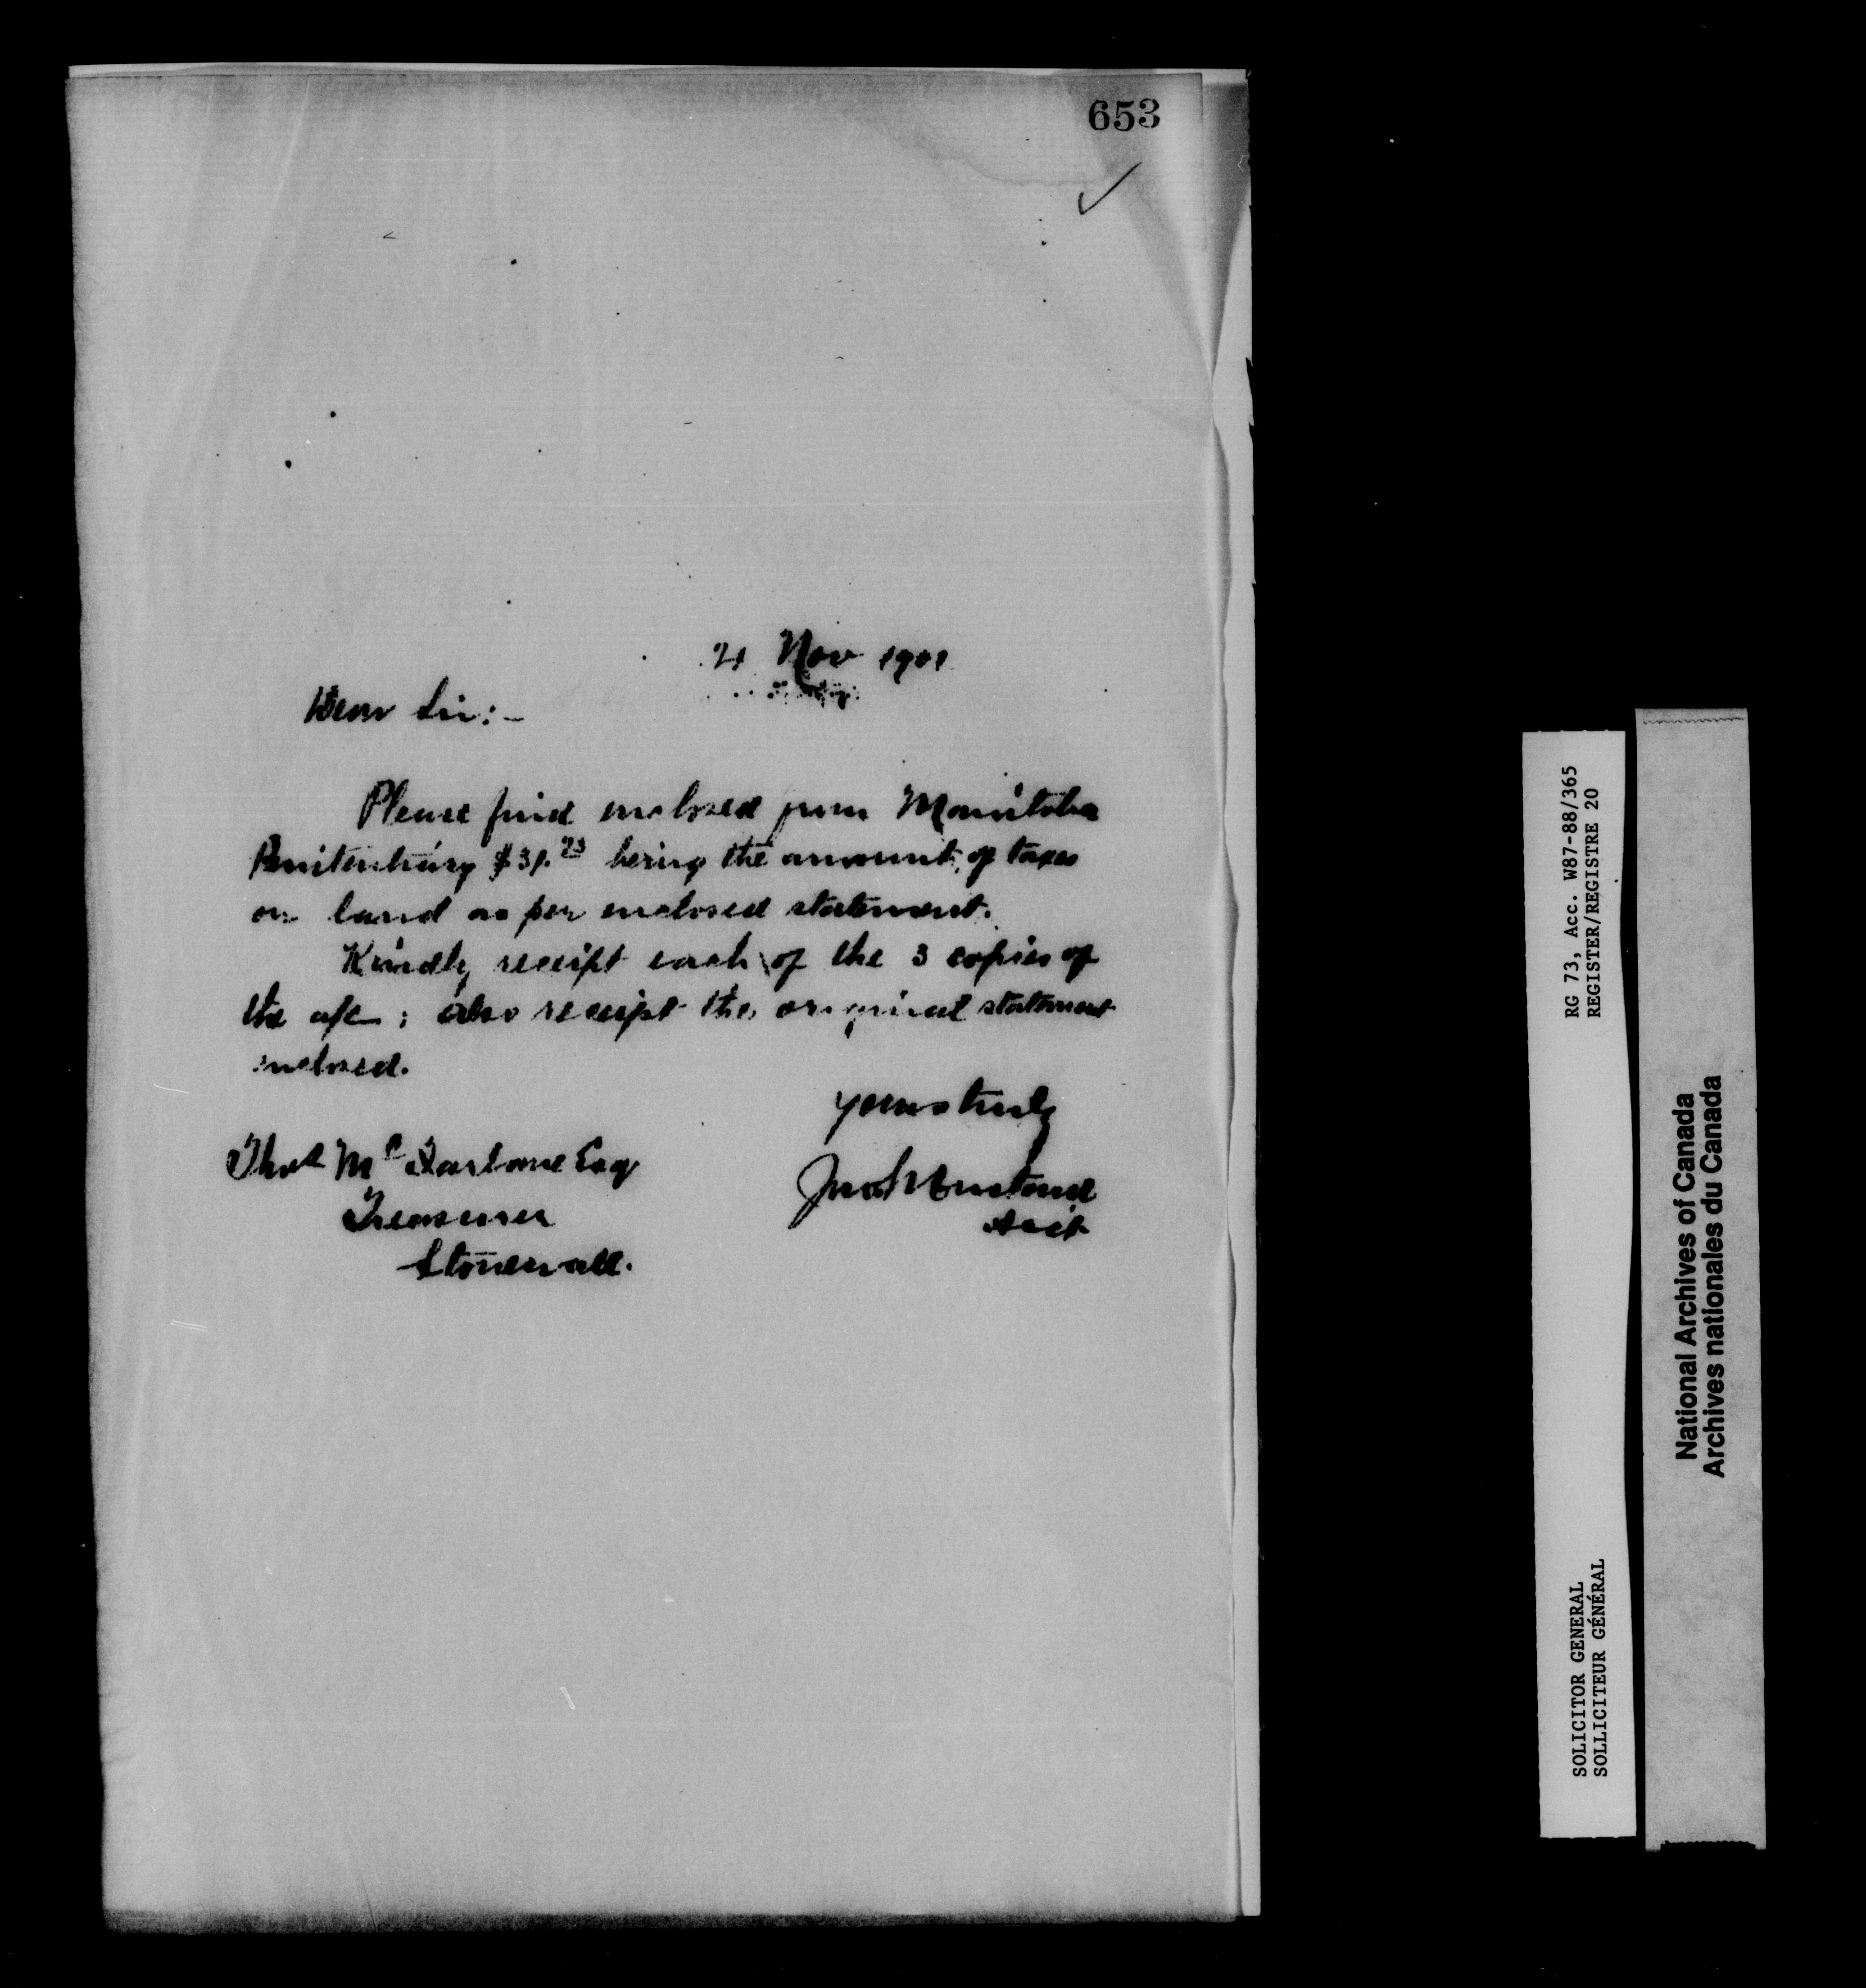 653
21 Nov 1901
Dear Sir:-
Please find enclosed from Manitoba
Penitentiary $31.23 being the amount of taxes
on land as per enclosed statement.
Kindly receipt each of the 3 copies of
the a/c ; also receipt the original statement
enclosed.
Yours truly
Thos Mc Farlane Esq
Treasurer
Acct
Stonewall.
RG 73, Acc. W87-88/365
REGISTER/REGISTRE 20
SOLICITOR GENERAL
SOLLICITEUR GÉNÉRAL
National Archives of Canada
Archives nationales du Canada